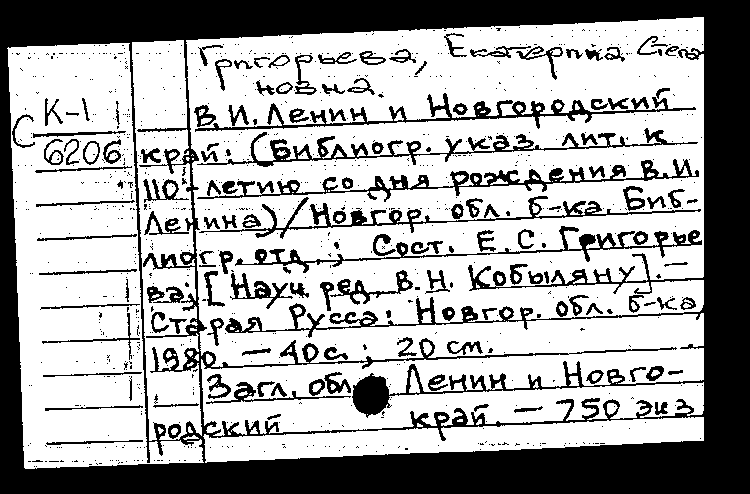 Григорьева, Екатерина Степа
новна.
К-1
В.И.Ленин и Новгородский
С
6206
край: (Библиогр. указ. лит. к
110-летию со дня рождения В.И.
Ленина) / Новгор. обл. б-ка. Биб-
лиогр. отд.; Сост. Е.С. Григорье
ва; [Науч. ред. В.Н. Кобыляну]. —
Старая Русса: Новгор. обл. б-ка,
1980. — 40с.; 20 см.
Загл. обл. Ленин и Новго-
родский край. — 750 экз